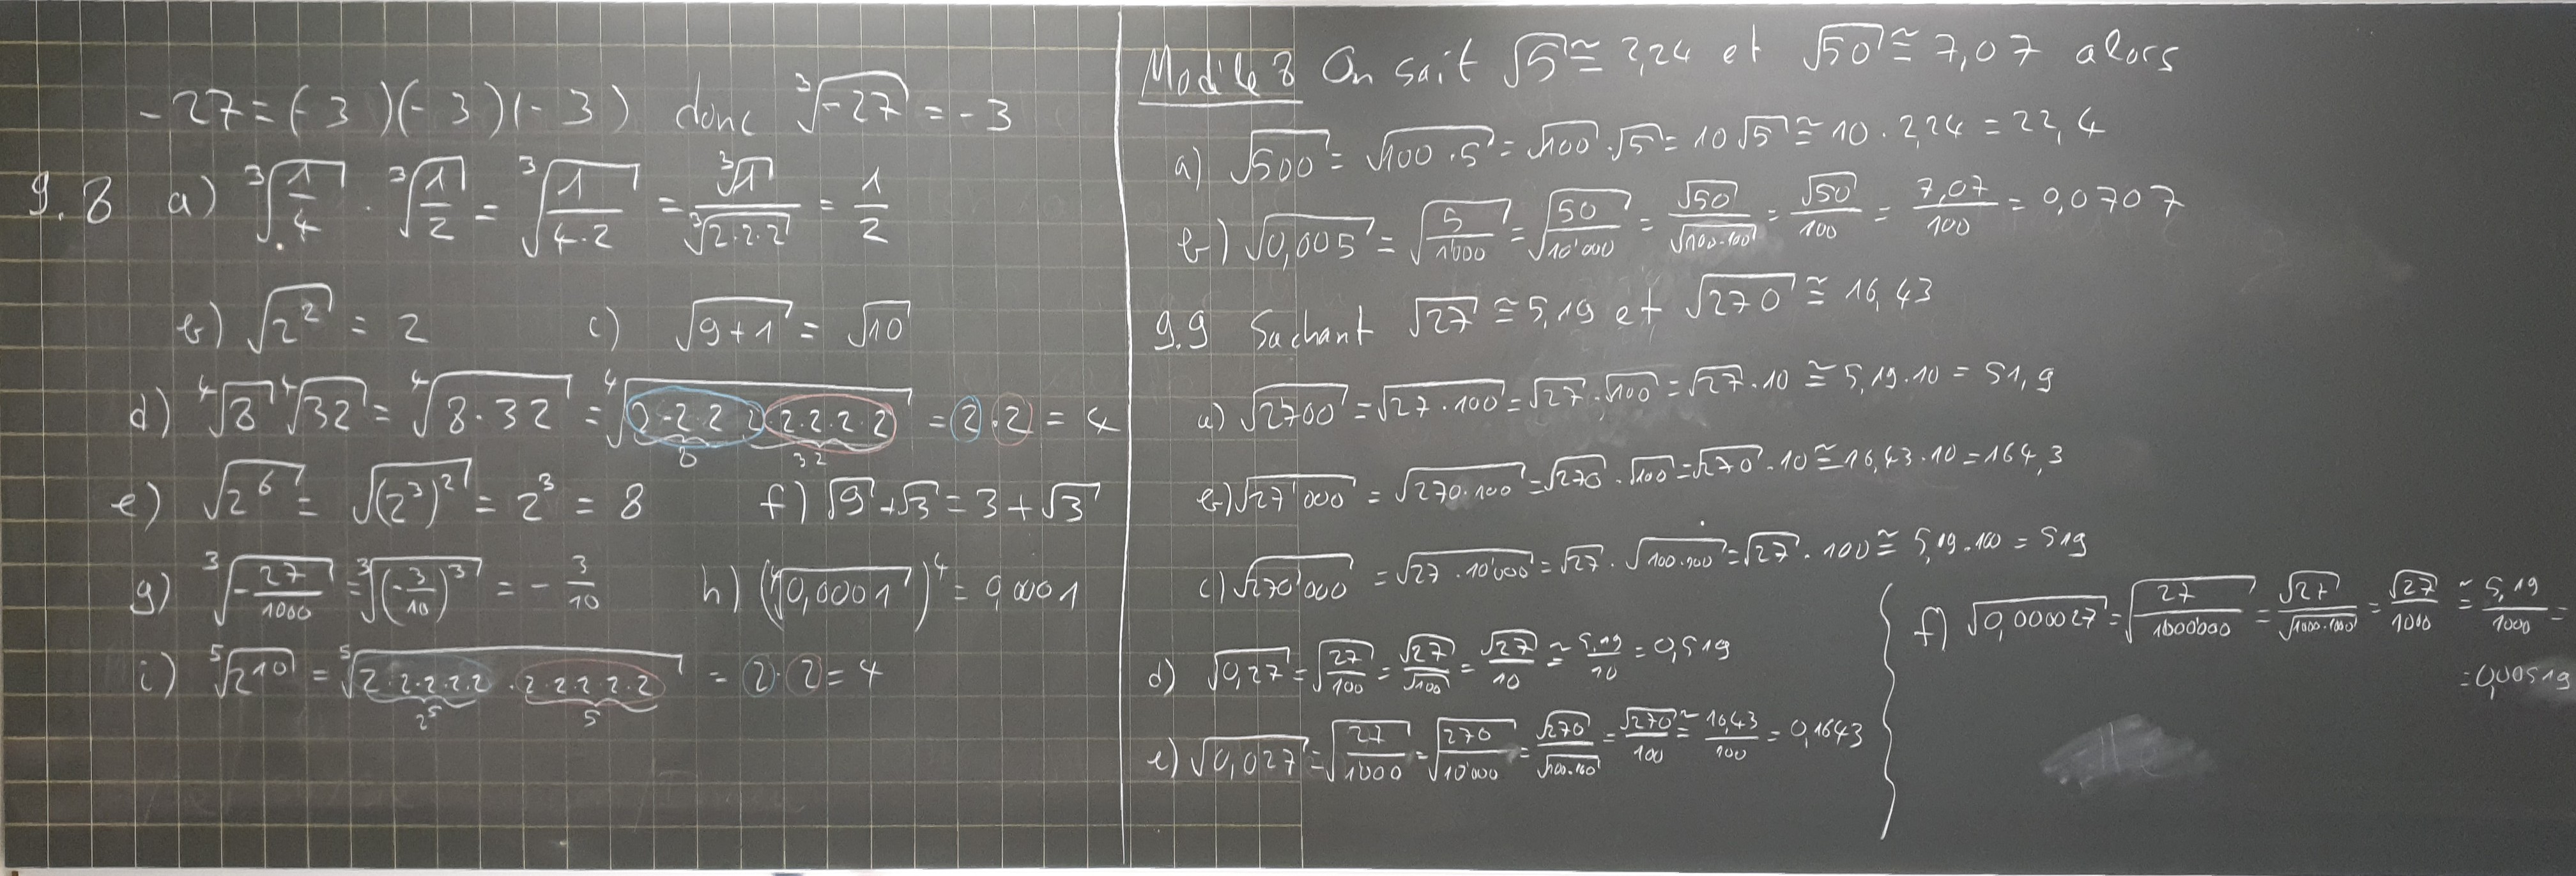 -27 = (-3)(-3)(-3) donc ∛(-27) = -3
9.8 a) ∛(1/4) · ∛(1/2) = ∛(1/(4·2)) = ∛1/∛(2·2·2) = 1/2
b) √(2²) = 2 c) √(9+1) = √10
d) ⁴√8 ⁴√32 = ⁴√(8·32) = ⁴√(2·2·2 2·2·2·2·2) = 2·2 = 4
8 32
e) √(2⁶) = √((2³)²) = 2³ = 8 f) √9 + √3 = 3 + √3
g) ∛(-27/1000) = ∛((-3/10)³) = -3/10 h) (⁴√(0,0001))⁴ = 0,0001
i) ⁵√(2¹⁰) = ⁵√(2·2·2·2·2 · 2·2·2·2·2) = 2·2 = 4
2⁵ 5
Modèle 8 On sait √5 ≅ 2,24 et √50 ≅ 7,07 alors
a) √500 = √(100·5) = √100 · √5 = 10√5 ≅ 10 · 2,24 = 22,4
b) √(0,005) = √(5/1'000) = √(50/10'000) = √50/√(100·100) = √50/100 = 7,07/100 = 0,0707
9.9 Sachant √27 ≅ 5,19 et √270 ≅ 16,43
a) √2700 = √(27·100) = √27 · √100 = √27 · 10 ≅ 5,19·10 = 51,9
b) √(27'000) = √(270·100) = √270 · √100 = √270 · 10 ≅ 16,43·10 = 164,3
c) √(270'000) = √(27·10'000) = √27 · √(100·100) = √27 · 100 ≅ 5,19·100 = 519
d) √(0,27) = √(27/100) = √27/√100 = √27/10 ≅ 5,19/10 = 0,519
e) √(0,027) = √(27/1'000) = √(270/10'000) = √270/√(100·100) = √270/100 ≅ 16,43/100 = 0,1643
f) √(0,000027) = √(27/1000000) = √27/√(1000·1000) = √27/1000 ≅ 5,19/1000 =
= 0,00519